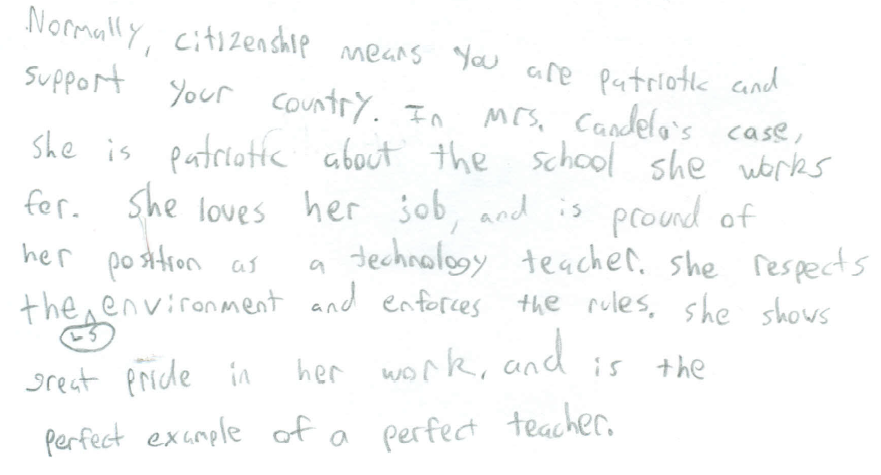 Normally, citizenship means you are patriotic and
support your country. In Mrs. Candela's case,
she is patriotic about the school she works
for. She loves her job, and is pround of
her position as a technology teacher. she respects
the environment and enforces the rules. she shows
LS
great pride in her work, and is the
perfect example of a perfect teacher.